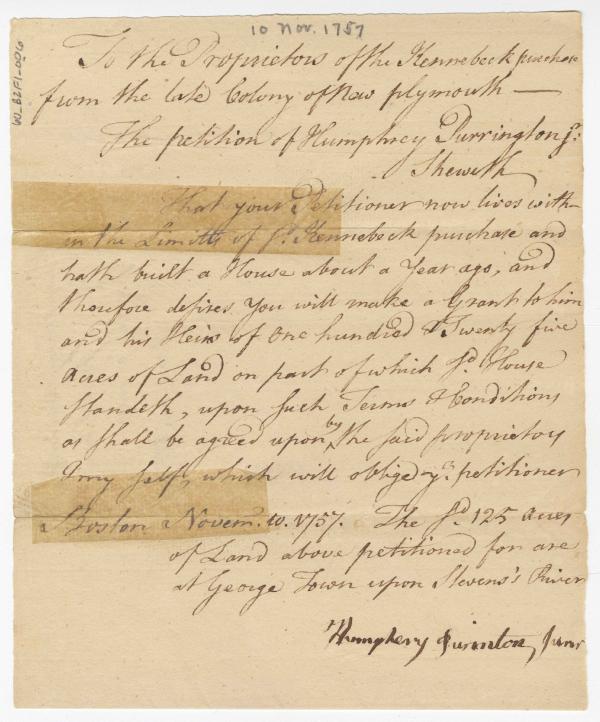 10 Nov. 1757
W-B2F1-006
To the Proprietors of the Kennebeck purchase
from the late Colony of New plymouth —
The petition of Humphrey Purrington jr.
Sheweth
That your Petitioner now lives with-
in the Limitts of sd. Kennebeck purchase and
hath built a House about a Year ago, and
therefore desires You will make a Grant to him
and his Heirs of One hundred & Twenty five
Acres of Land on part of which sd. House
Standeth, upon such Terms & Conditions
as shall be agreed upon by the said proprietors
& my self, which will oblige yr. petitioner
Boston Novemr. 10. 1757. The sd. 125 acres
of Land above petitioned for are
at George Town upon Stevens's River
Humphery Purinton Junr